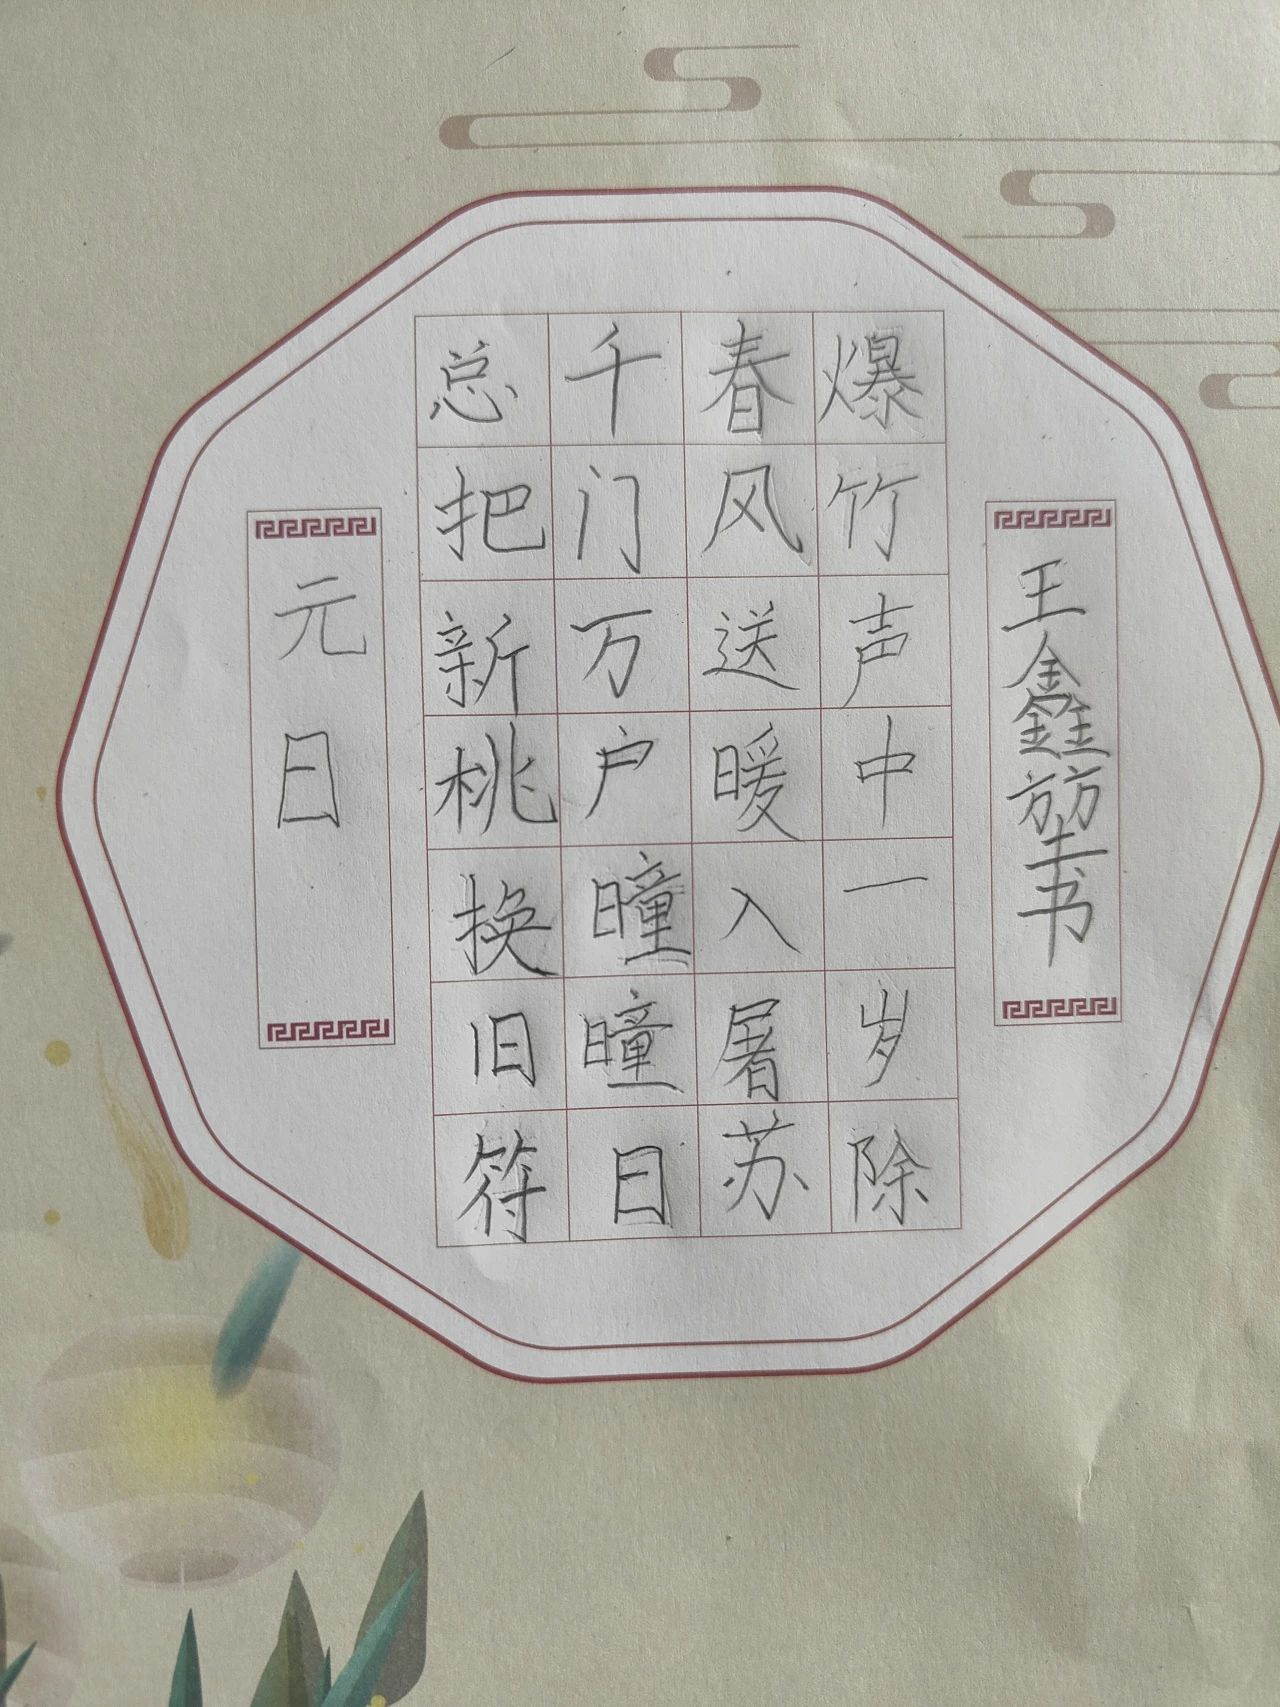 王鑫堃书
爆竹声中一岁除
春风送暖入屠苏
千门万户曈曈日
总把新桃换旧符
元日